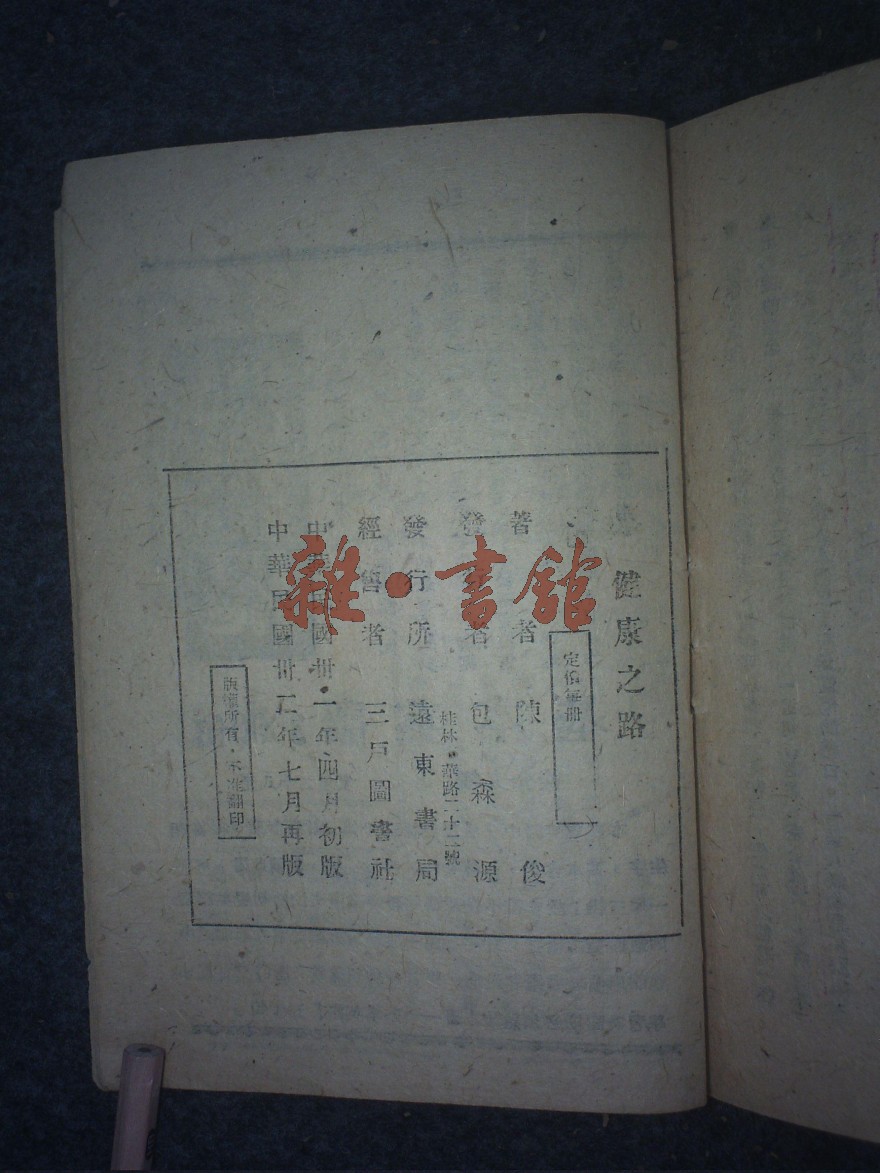 健康之路
定價每冊
著者 陳俊
發 者 包森源
桂林 路二十二號
發行所 遠東書局
經售者 三戶圖書社
中華民國卅一年四月初版
中華民國卅二年七月再版
版權所有・不准翻印
雜・書館